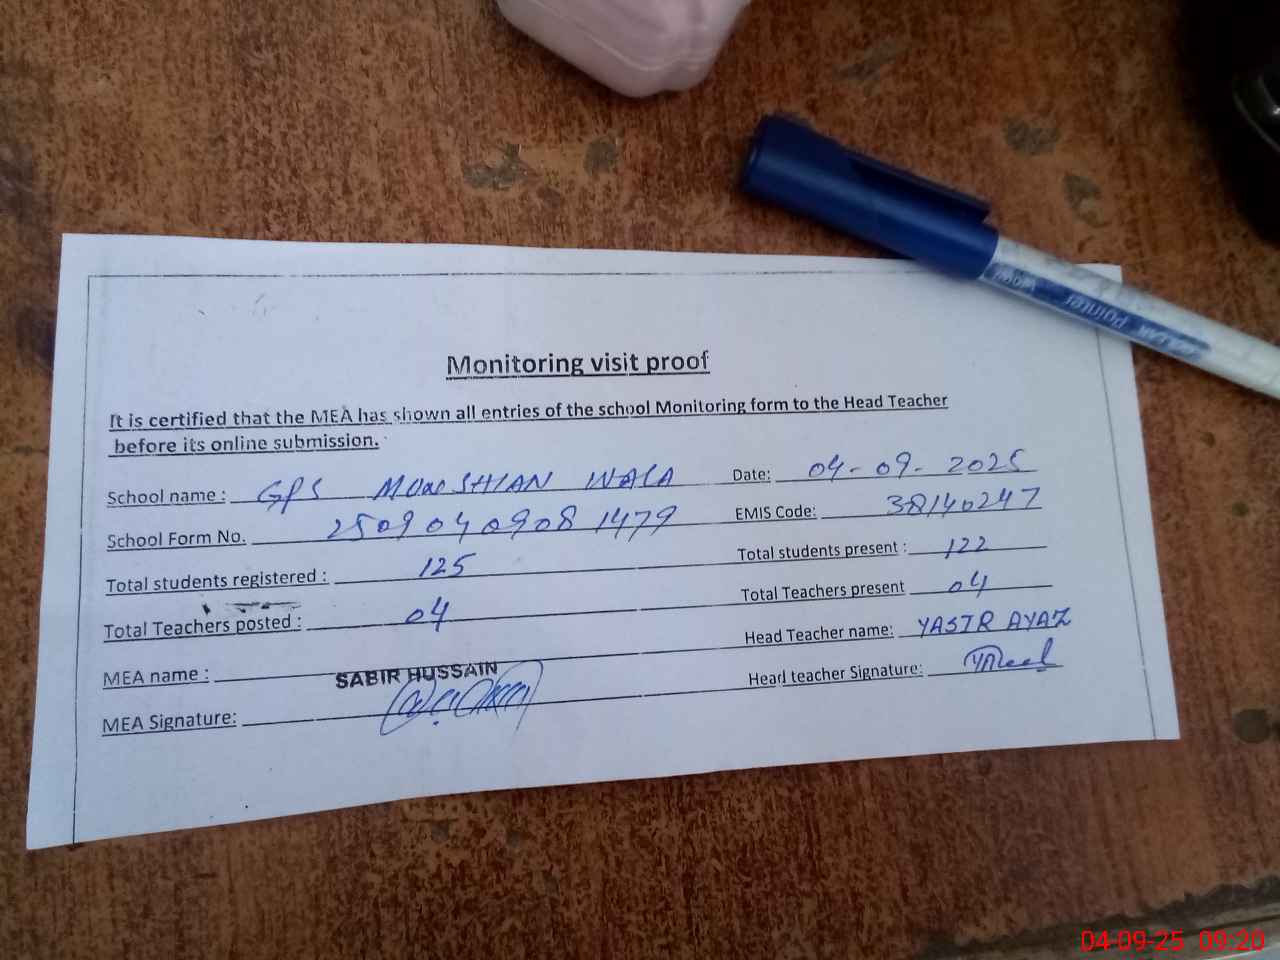 Monitoring visit proof
It is certified that the MEA has shown all entries of the school Monitoring form to the Head Teacher
before its online submission.
School name : GPS MUNSHIAN WALA Date: 04-09-2025
School Form No. 25090409081479 EMIS Code: 38140247
Total students registered : 125 Total students present : 122
Total Teachers posted : 04 Total Teachers present 04
MEA name : SABIR HUSSAIN Head Teacher name: YASIR AYAZ
MEA Signature: Head teacher Signature:
Pointer
04-09-25 09:20